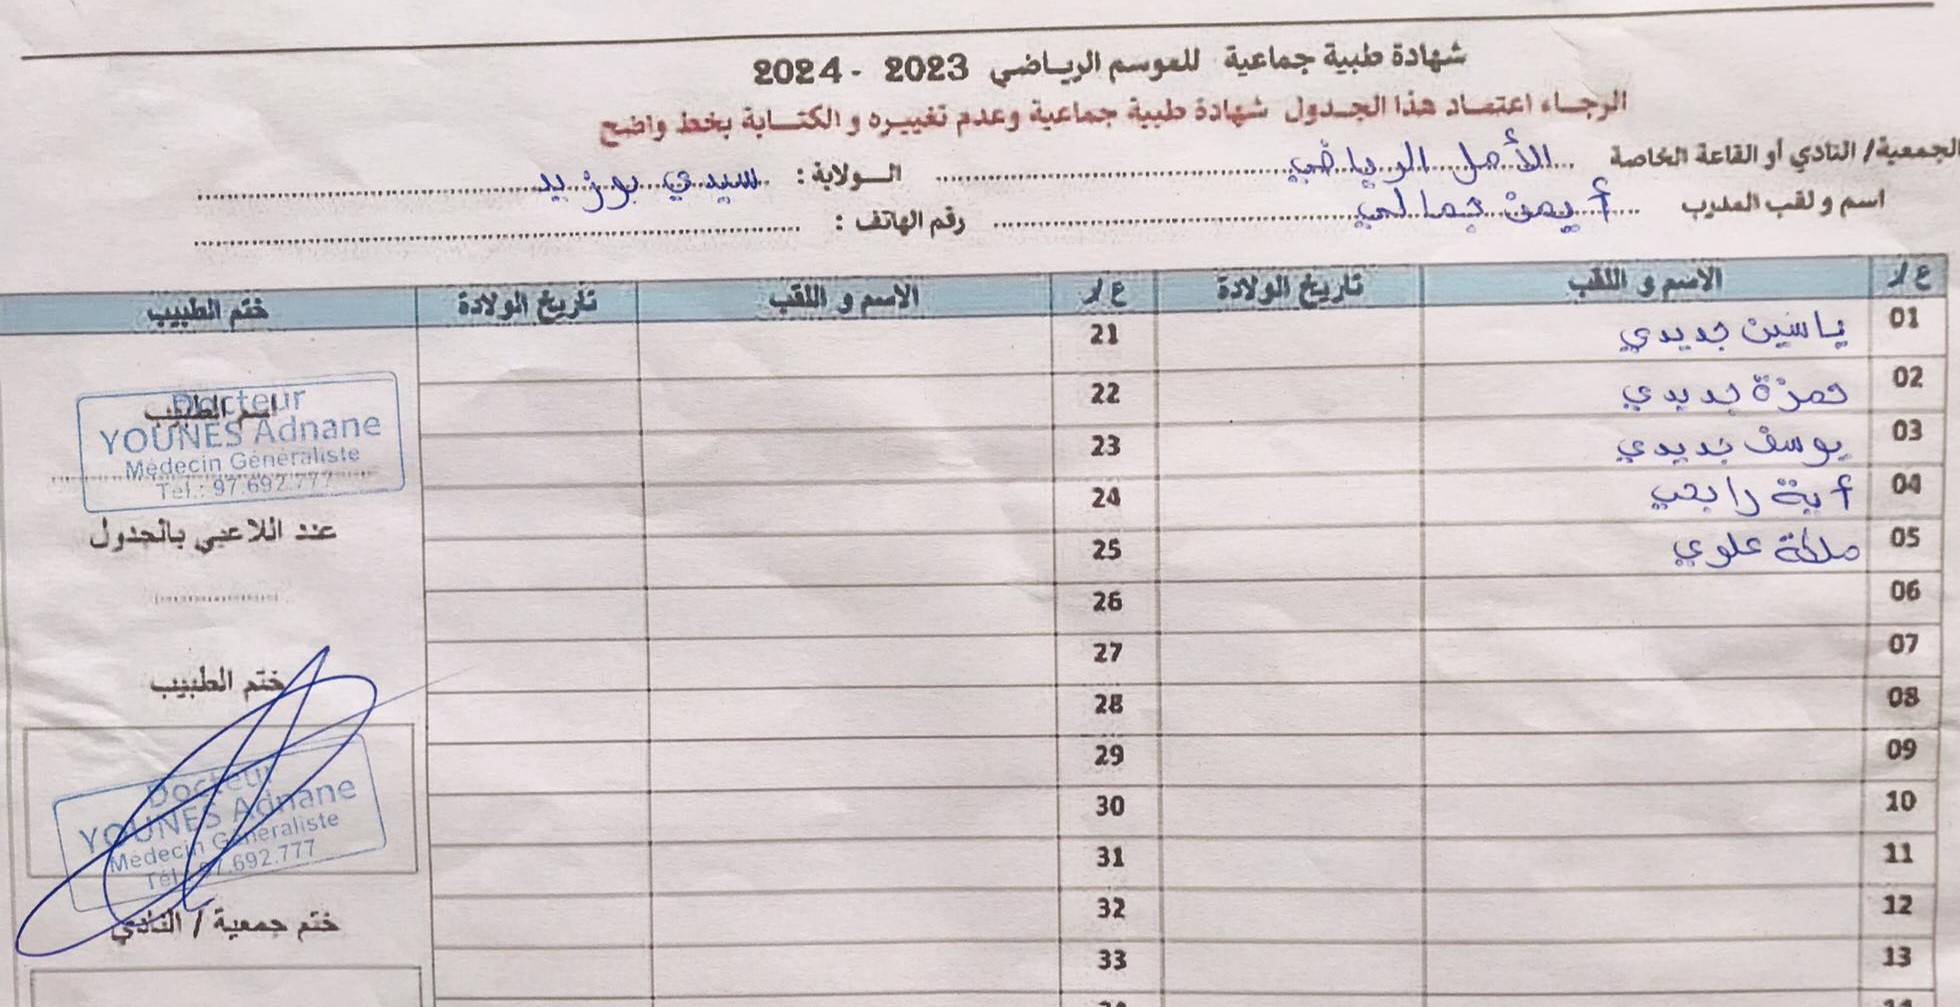 شهادة طبية جماعية للموسم الرياضي 2023 - 2024
الرجاء اعتماد هذا الجدول شهادة طبية جماعية وعدم تغييره و الكتابة بخط واضح
الجمعية/ النادي أو القاعة الخاصة الأمل الرياضي الولاية : سيدي بوزيد
اسم و لقب المدرب أيمن جمالي رقم الهاتف :
ع/ر الاسم و اللقب تاريخ الولادة ع/ر الاسم و اللقب تاريخ الولادة ختم الطبيب
01 ياسين جديدي 21
02 حمزة جديدي 22
03 يوسف جديدي 23
04 آية رابحي 24
05 ملكة علوي 25
06 26
07 27
08 28
09 29
10 30
11 31
12 32
13 33
اسم الطبيب
Docteur
YOUNES Adnane
Médecin Généraliste
Tél.: 97.692.777
عدد اللاعبي بالجدول
ختم الطبيب
Docteur
YOUNES Adnane
Médecin Généraliste
Tél.: 97.692.777
ختم جمعية / النادي